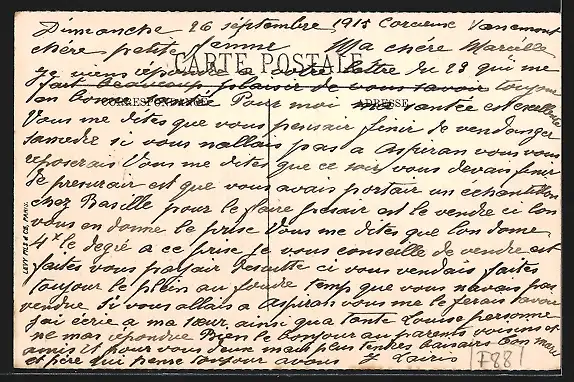 Dimanche 26 septembre 1915
chère petite femme Ma chère Marcelle
CARTE POSTALE
Je viens répondre a votre lettre du 23 qui me
fait beaucoup plaisir de vous savoir toujour
en bonne Pour moi ma santée est excellente
CORRESPONDANCE ADRESSE
Vous me dites que vous pensair finir de vendanger
samedie si vous nallais pas a Aspiran vous vous
reposerais Vous me dites que ce soir vous devais finir
le presurair est que vous avais portair un echantillon
chez Basille pour le flaire presair est le vendre si lon
vous en donne le prise Vous me dites que lon dome
4 le degré a ce prise je vous conseille de vendre est
faites vous payair ensuitte ci vous vendais faites
toujour le plein au foudre temp que vous navais pas
vendue Si vous allais a Aspiran vous me le ferais savoir
jai écrie a ma sœur ainsi qua tante Louise personne
ne mas répondue Bien le bonjour au parents voisins et
amis et pour vous deux mais plus tendres baisairs bon mere
et père qui pense toujour a vous
LEVY FILS & CIE, PARIS
F881